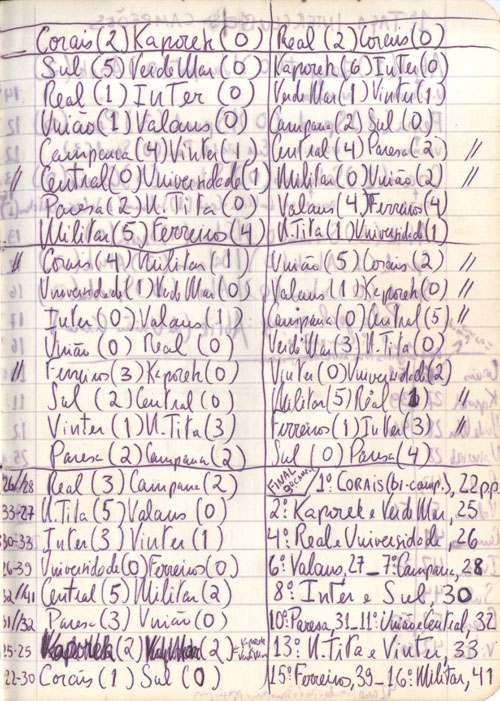 Corais(2)Kaporek(0)
Sul(5)VerdeMar(0)
Real(1)Inter(0)
União(1)Valaus(0)
Campana(4)Vinter(1)
// Central(0)Universidade(1)
Paresa(2)N.Tita(0)
Militar(5)Ferreiros(4)
Real(2)Corais(0)
Kaporek(6)Inter(0)
VerdeMar(1)Vinter(1)
Campana(2)Sul(0)
Central(4)Paresa(2) //
Militar(0)União(2) //
Valaus(4)Ferreiros(4)
N.Tita(1)Universidade(1)
// Corais(4)Militar(1)
Universidade(1)VerdeMar(0)
Inter(0)Valaus(1)
União(0) Real(0)
// Ferreiros(3)Kaporek(0)
Sul(2)Central(0)
Vinter(1)N.Tita(3)
Paresa(2)Campana(2)
União(5)Corais(2) //
Valaus(1)Kaporek(0) //
Campana(0)Central(5) //
VerdeMar(3)N.Tita(0)
Vinter(0)Universidade(2)
Militar(5)Real(1) //
Ferreiros(1)Inter(3) //
Sul(0)Paresa(4)
26/28 Real(3)Campana(2)
33-27 N.Tita(5)Valaus(0)
30-33 Inter(3)Vinter(1)
26-39 Universidade(0)Ferreiros(0)
32/41 Central(5)Militar(2)
31/32 Paresa(3)União(0)
25-25 Kaporek(2) (2)
22-30 Corais(1)Sul(0)
FINAL
1º CORAIS(bi-camp.), 22pp
2º Kaporek e VerdeMar, 25
4º Real e Universidade, 26
6º Valaus, 27_7º Campana, 28
8º Inter e Sul, 30
10º Paresa, 31_11º União e Central, 32
13º N.Tita e Vinter, 33
15º Ferreiro, 39_16º Militar, 41